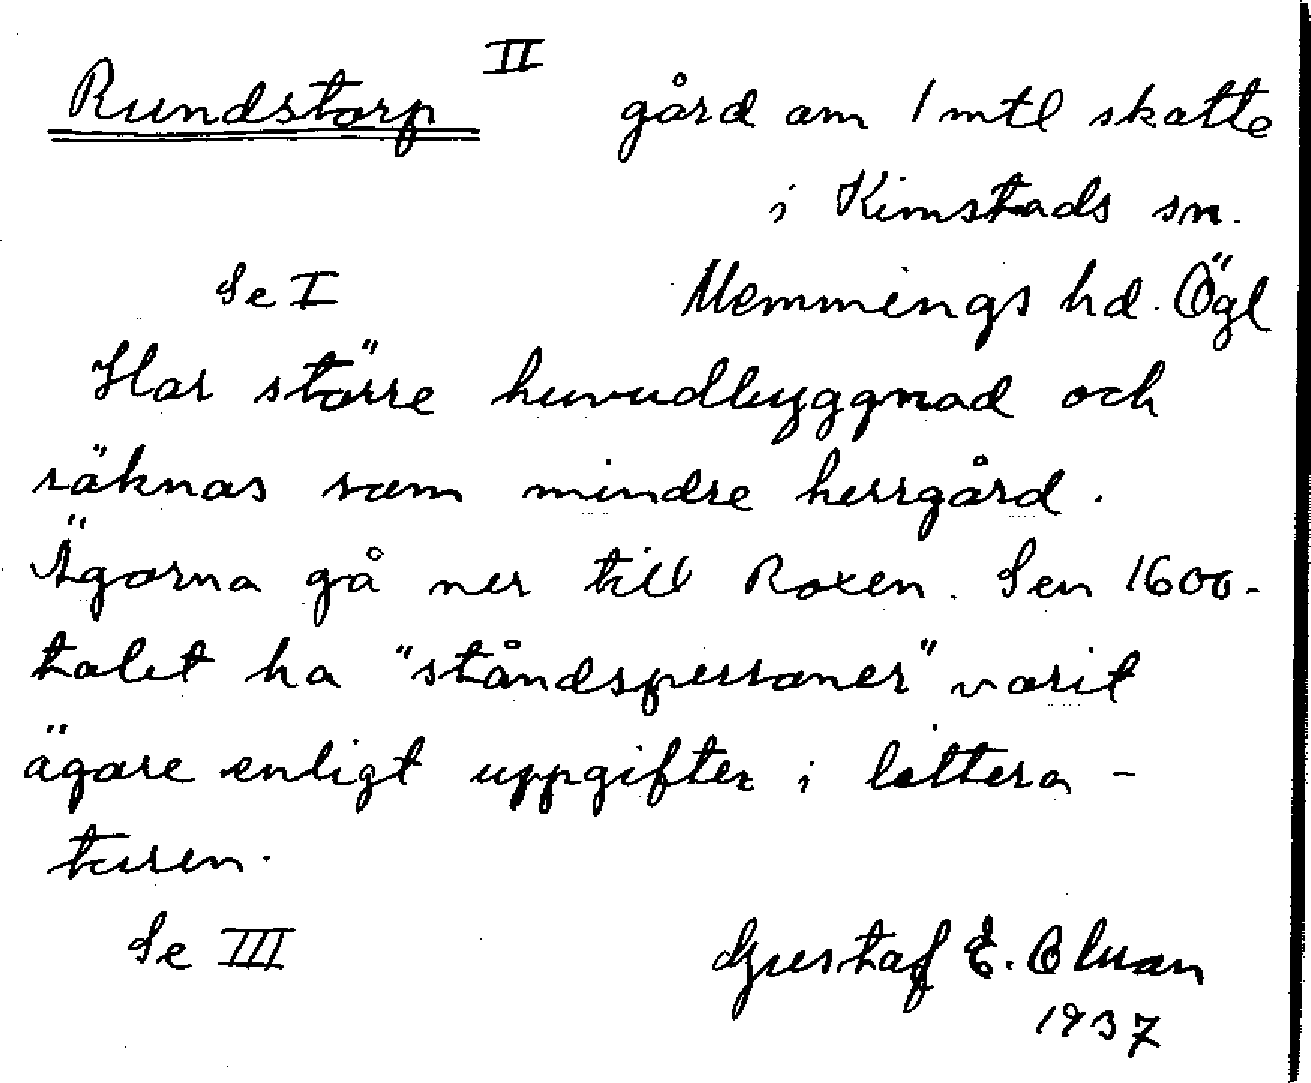 Rundstorp II gård om 1 mtl skatte
i Kimstads sn.
Se I Memmings hd. Ögl
Har större huvudbyggnad och
räknas som mindre herrgård.
Ägorna gå ner till Roxen. Sen 1600-
talet ha "ståndspersoner" varit
ägare enligt uppgifter i littera-
turen.
Se III Gustaf E.
1937